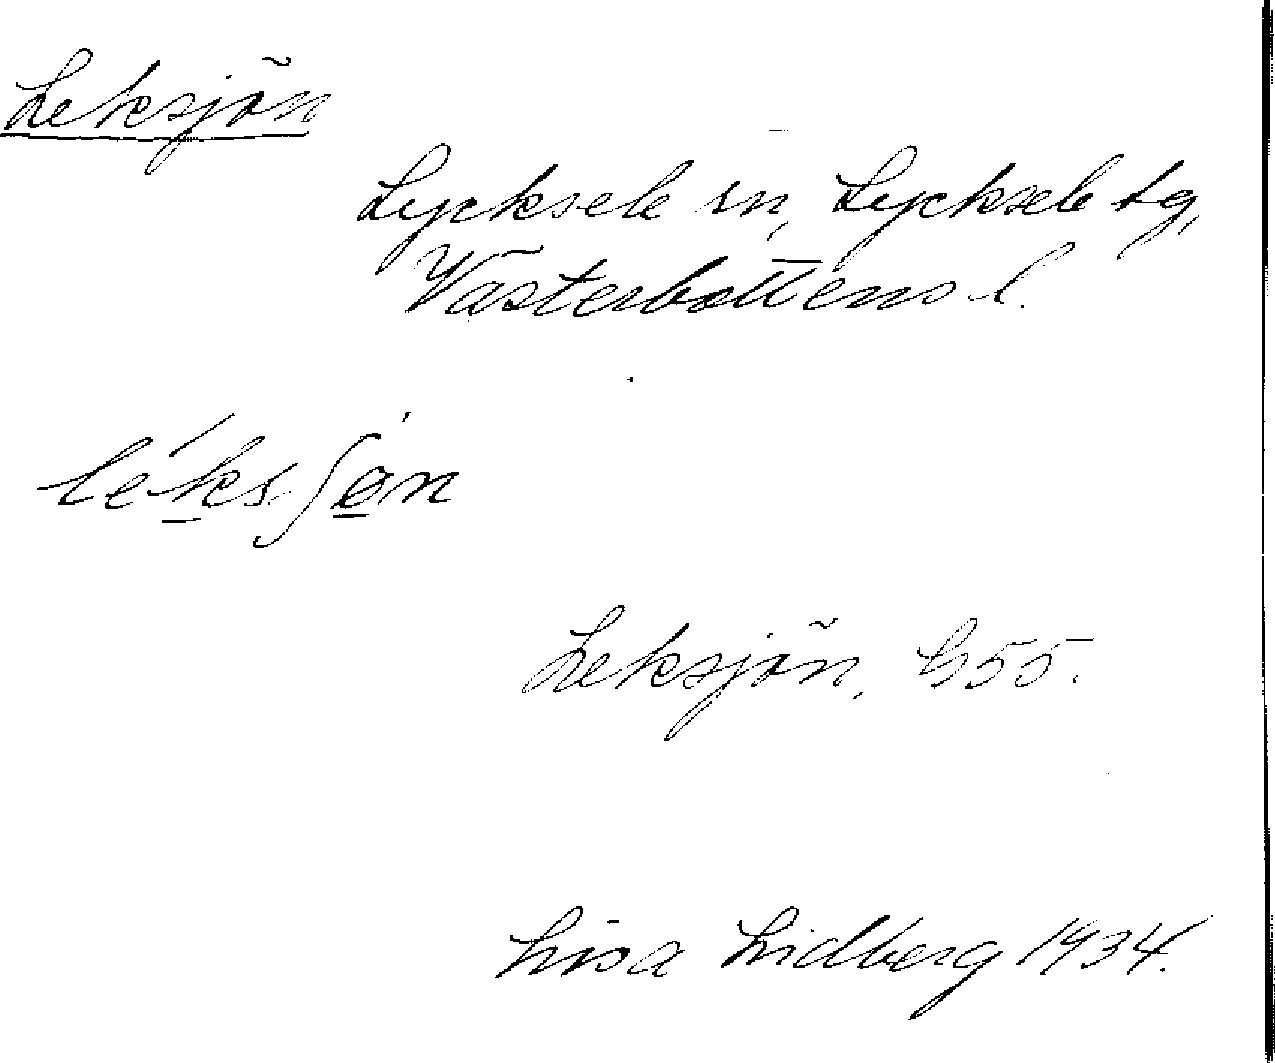 Leksjön
Lycksele sn, Lycksele tg,
Västerbottens l.
Leksjön,
Lisa Lidberg 1934.